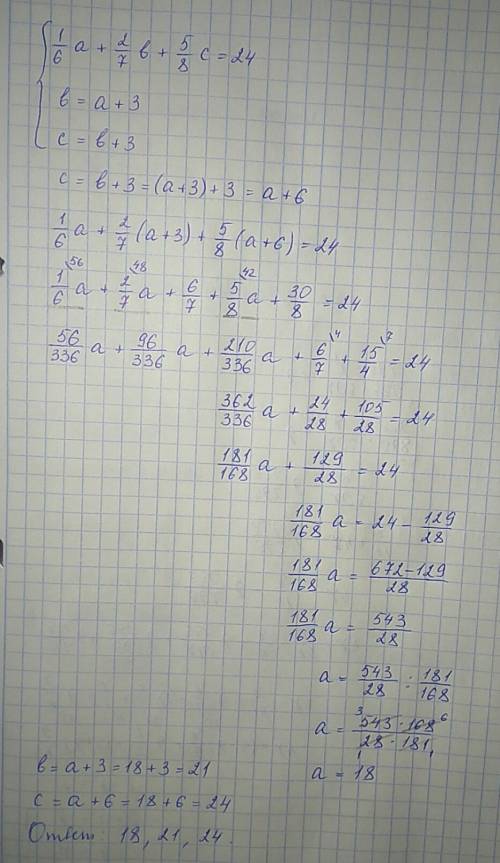 1/6 a + 2/7 в + 5/8 c = 24
в = a + 3
c = в + 3
c = в + 3 = (a+3) + 3 = a + 6
1/6 a + 2/7 (a+3) + 5/8 (a+6) = 24
1/6 \56 a + 2/7 \48 a + 6/7 + 5/8 \42 a + 30/8 = 24
56/336 a + 96/336 a + 210/336 a + 6/7 \4 + 15/4 \7 = 24
362/336 a + 24/28 + 105/28 = 24
181/168 a + 129/28 = 24
181/168 a = 24 - 129/28
181/168 a = 672-129/28
181/168 a = 543/28
a = 543/28 : 181/168
a = 3 543 · 168 6 / 1 28 · 181 1
a = 18
в = a + 3 = 18 + 3 = 21
c = a + 6 = 18 + 6 = 24
Ответ: 18, 21, 24.